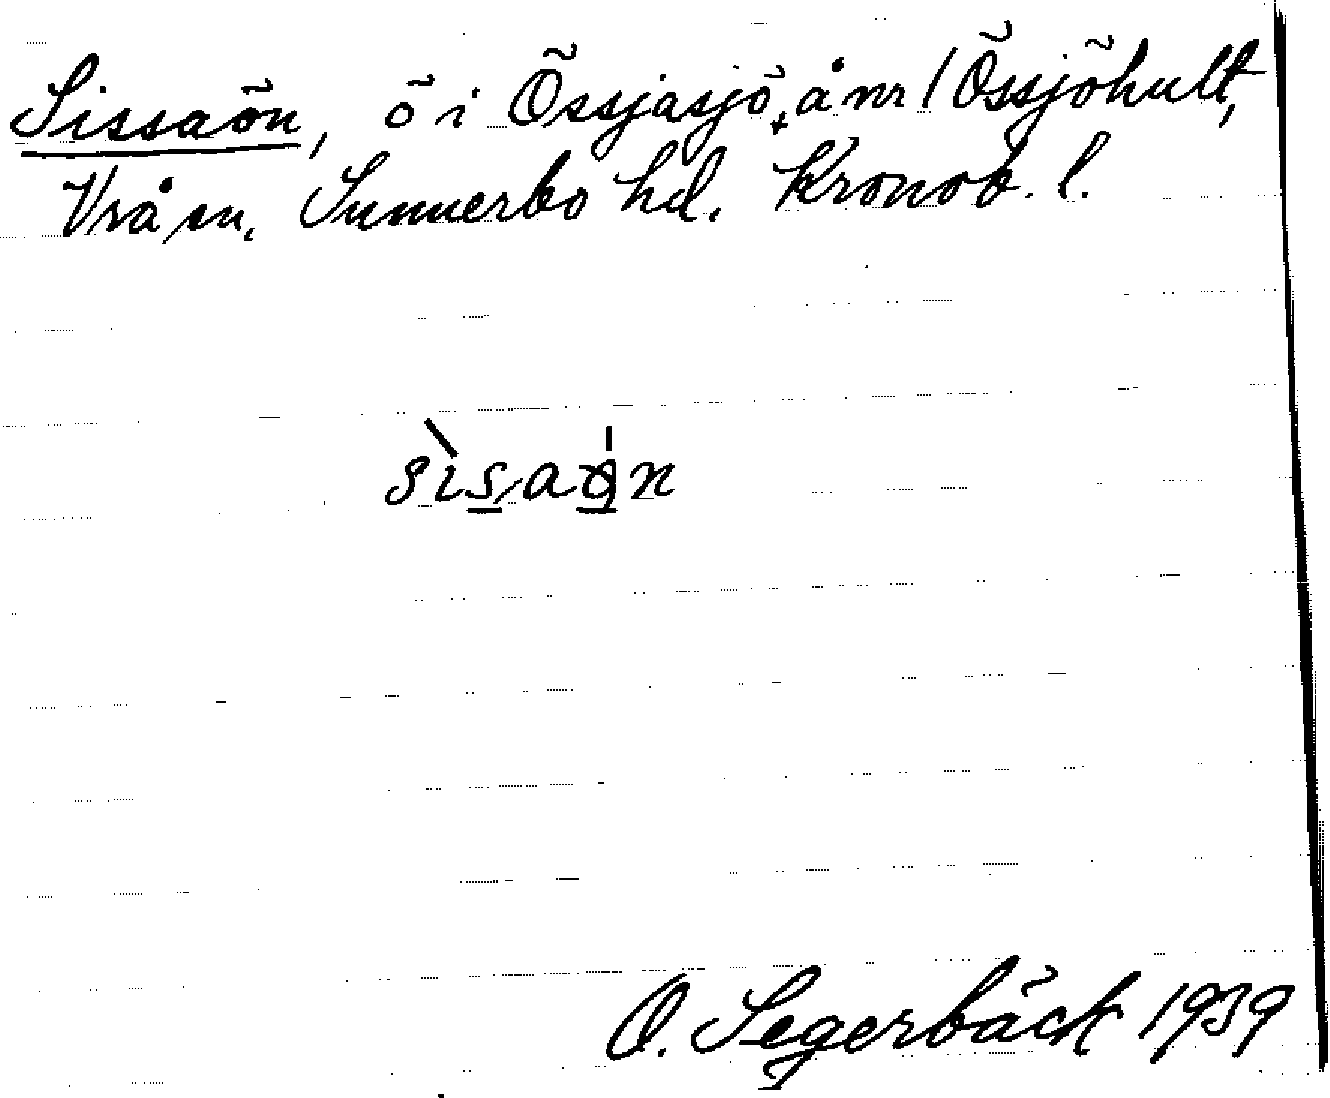 Sissaön, ö i Össjasjö, å nr 1 Össjöhult,
Vrå sn, Sunnerbo hd. Kronob. l.
sìsaön
O. Segerbäck 1939